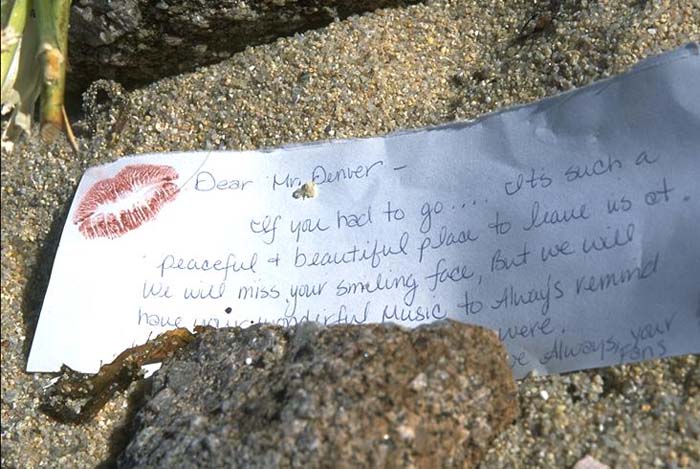 Dear Mr. Denver -
If you had to go.... It's such a
peaceful & beautiful place to leave us at.
We will miss your smiling face, But we will
have your wonderful Music to Always remind
were.
Always, your
Fans